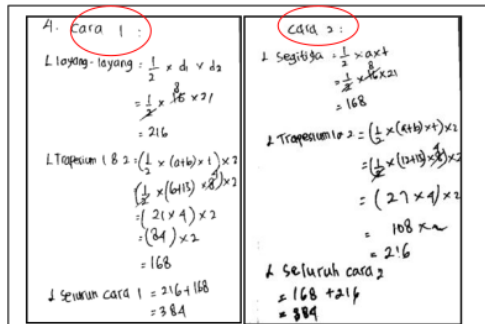 4. Cara 1 :
L layang-layang = 1/2 x d1 x d2
= 1/2 x 16 8 x 21
= 216
L Trapesium 1 & 2 = (1/2 x (a+b) x t) x 2
(1/2 x (6+13) x 8 4) x 2
= (21 x 4) x 2
= (84) x 2
= 168
L seluruh cara 1 = 216 + 168
= 384
cara 2 :
L segitiga = 1/2 x a x t
= 1/2 x 16 8 x 21
= 168
L Trapesium 1 & 2 = (1/2 x (a+b) x t) x 2
= (1/2 x (12+15) x 8 4) x 2
= (27 x 4) x 2
= 108 x 2
= 216
L seluruh cara 2
= 168 + 216
= 384